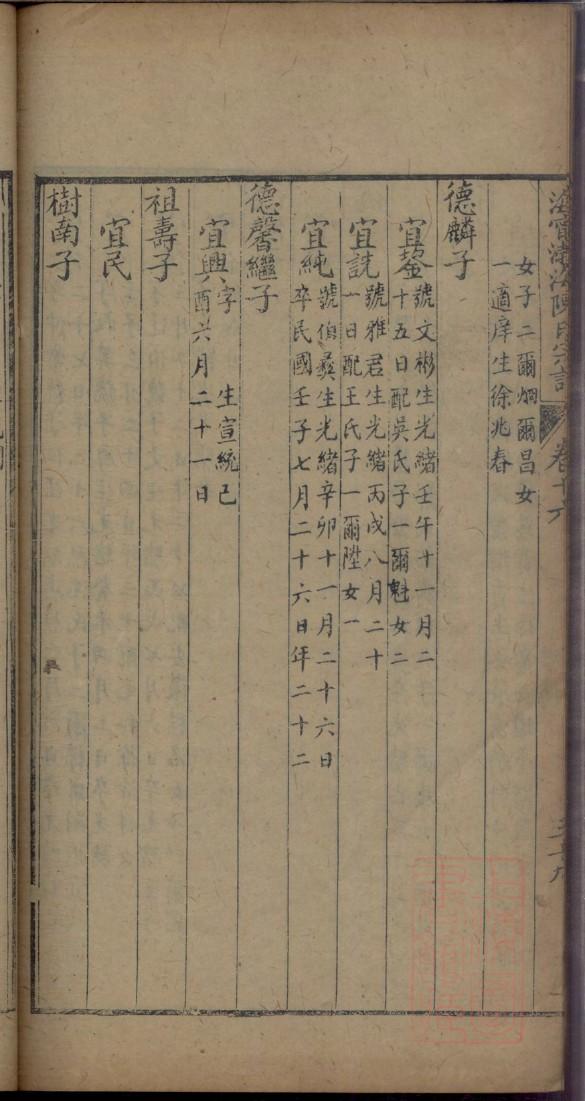 海寧渤海陳氏宗譜 卷十六
女子二爾烱爾昌女
一適庠生徐兆春
德麟子
宜鋆
號文彬生光緒壬午十一月二
十五日配吳氏子一爾魁女二
宜詵
號雅君生光緒丙戌八月二十
一日配王氏子一爾陞女一
宜純
號伯彝生光緒辛卯十一月二十六日
卒民國壬子七月二十六日年二十二
德馨繼子
宜興
字 生宣統己
酉六月二十一日
祖壽子
宜民
樹南子